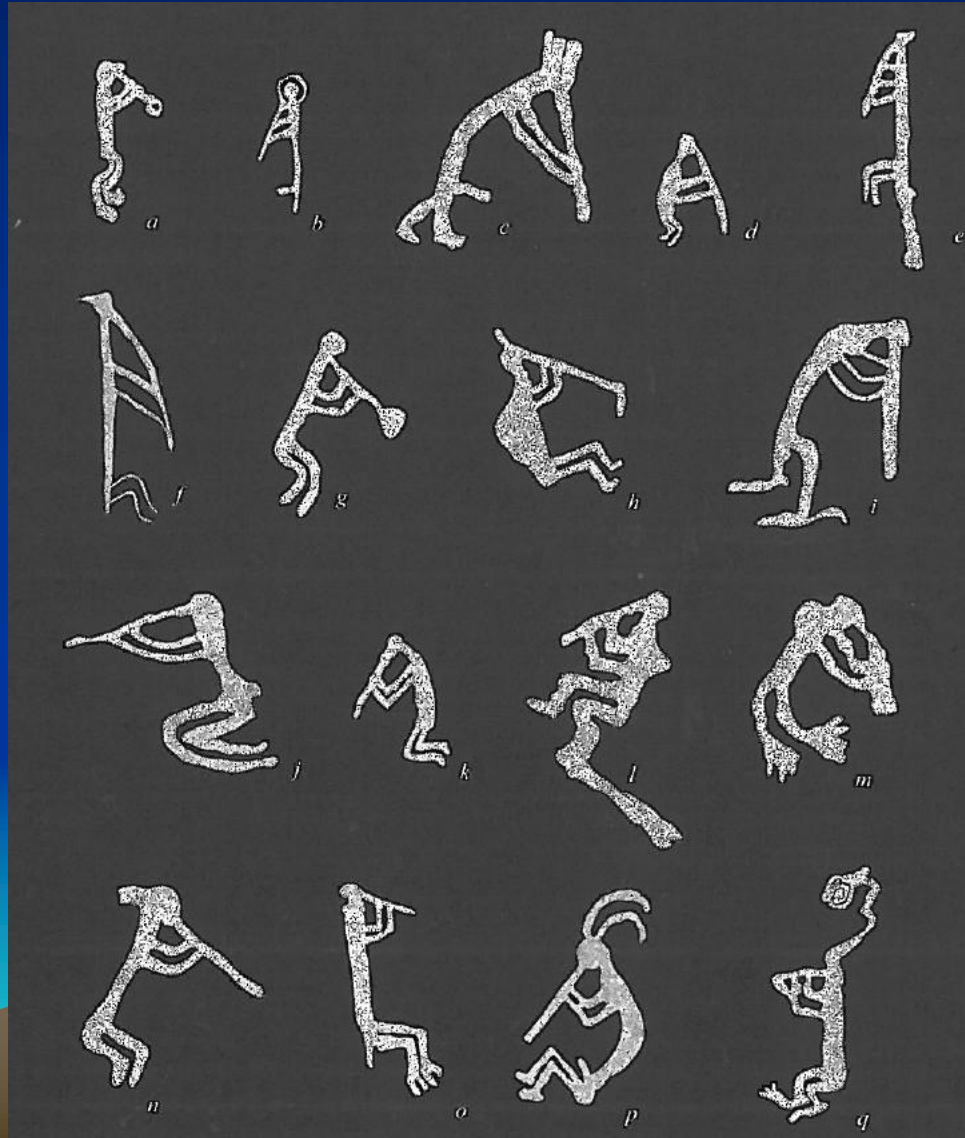 a b c d e
f g h i
j k l m
n o p q